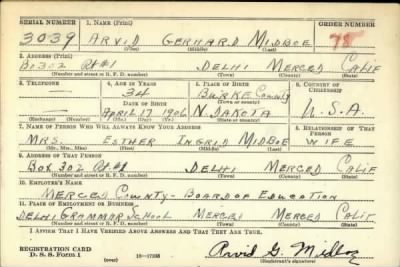 SERIAL NUMBER 1. NAME (Print) ORDER NUMBER
3039 ARVID GERHARD MIDBOE 78
(First) (Middle) (Last)
2. ADDRESS (Print)
Box 302 Rt #1 DELHI MERCED CALIF
(Number and street or R. F. D. number) (Town) (County) (State)
3. TELEPHONE 4. AGE IN YEARS 5. PLACE OF BIRTH 6. COUNTRY OF CITIZENSHIP
— 34 BURKE County
DATE OF BIRTH (Town or county)
— APRIL 17 1906 N. DAKOTA U.S.A.
(Exchange) (Number) (Mo.) (Day) (Yr.) (State or country)
7. NAME OF PERSON WHO WILL ALWAYS KNOW YOUR ADDRESS 8. RELATIONSHIP OF THAT PERSON
MRS. ESTHER INGRID MIDBOE WIFE
(Mr., Mrs., Miss) (First) (Middle) (Last)
9. ADDRESS OF THAT PERSON
Box 302 Rt #1 DELHI MERCED CALIF
(Number and street or R. F. D. number) (Town) (County) (State)
10. EMPLOYER'S NAME
MERCED COUNTY - BOARD OF EDUCATION
11. PLACE OF EMPLOYMENT OR BUSINESS
DELHI GRAMMAR SCHOOL MERCED MERCED CALIF
(Number and street or R. F. D. number) (Town) (County) (State)
I AFFIRM THAT I HAVE VERIFIED ABOVE ANSWERS AND THAT THEY ARE TRUE.
REGISTRATION CARD
D. S. S. Form 1 (over) Arvid G. Midboe
(Registrant's signature)